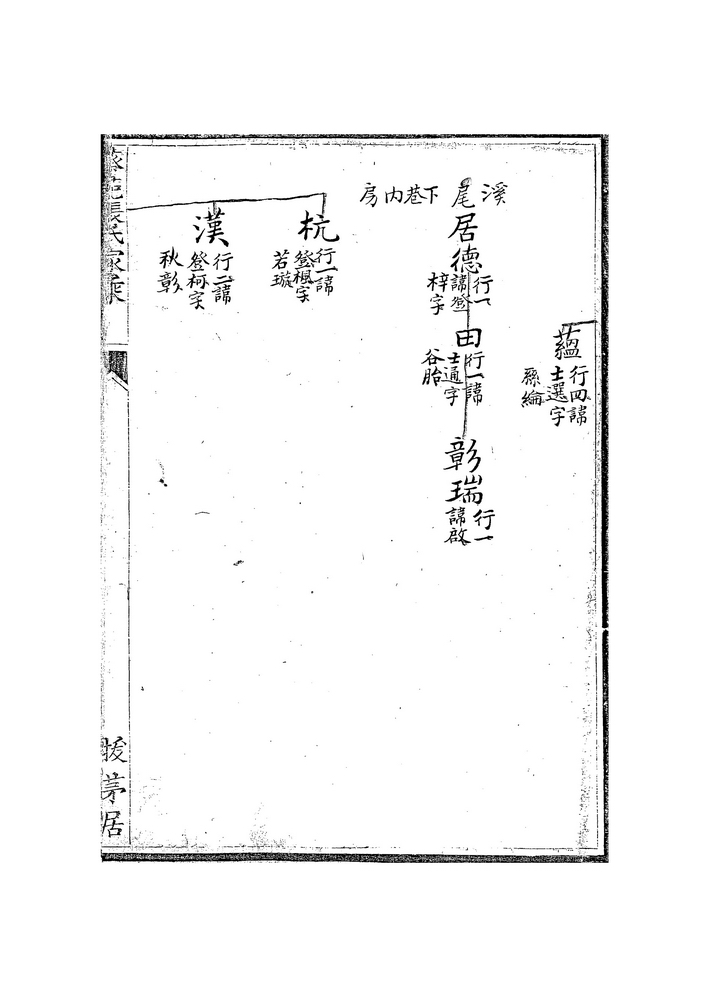 蘊
行四諱
士選字
溪
尾
居德
行一
諱登
梓字
田
行一諱
士通字
谷胎
彰瑞
行一
諱啟
下巷内房
杭
行一諱
登楓字
若璇
漢
行二諱
登柯字
秋彰
張氏家乘
茅居